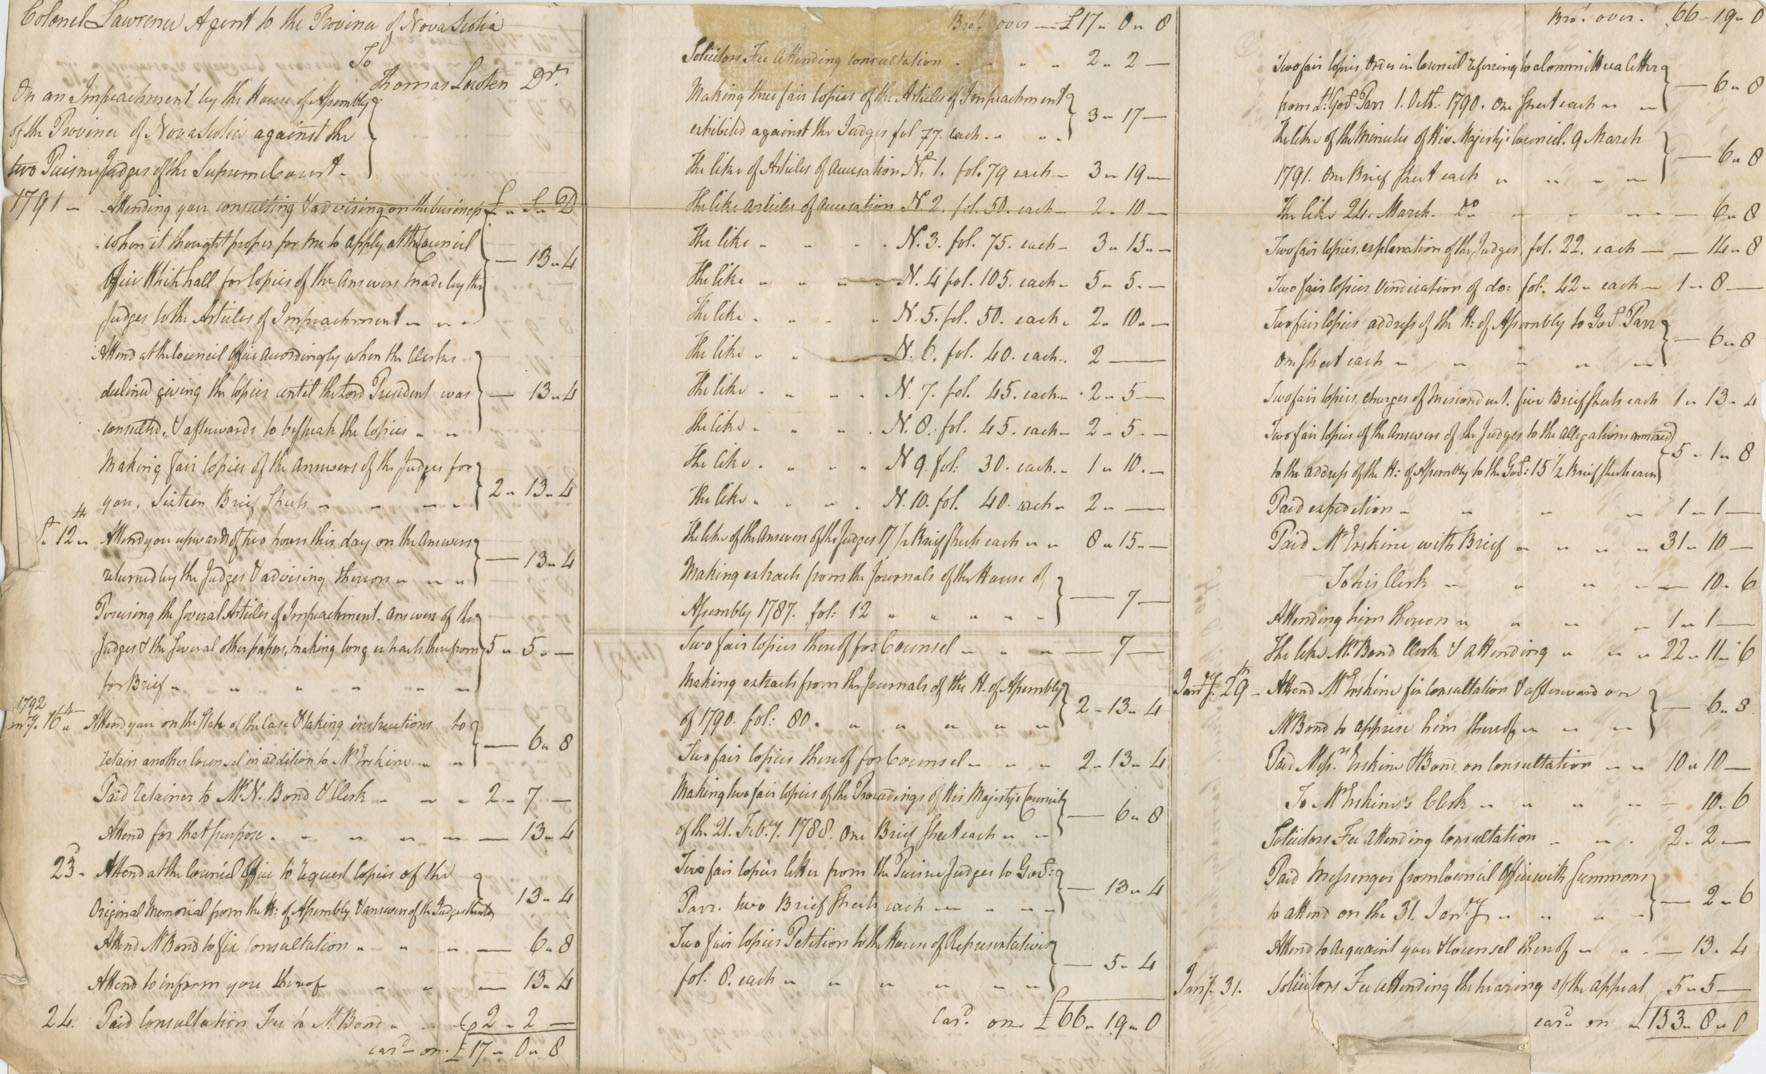 Colonel Lawrence Agent to the Province of Nova Scotia
To
Thomas Lowten Dr.
On an Impeachment by the House of Assembly
of the Province of Nova Scotia against the
two Puisne Judges of the Supreme Court.
1791 - Attending you consulting & advising on the business £ " S " D
when it thought proper for me to apply at the Council
Office Whitehall for Copies of the Answers made by the — 13 " 4
Judges to the Articles of Impeachment " " "
Attend at the Council Office accordingly when the Clerks
declined giving the Copies until the Lord President was — 13 " 4
consulted, & afterwards to bespeak the Copies " "
Making fair Copies of the Answers of the Judges for
you, Sixteen Brief Sheets " " " " 2 " 13 " 4
12th Attend you upwards of two hours this day on the Answers
returned by the Judges & advising thereon " " " — 13 " 4
Perusing the several Articles of Impeachment, Answers of the
Judges & the several other papers, making long extracts therefrom 5 " 5 " —
for Brief " " " " " " "
1792
16th Attend you on the State of the Case & taking instructions to
retain another Counsel in addition to Mr. Erskine " " — 6 " 8
Paid retainer to Mr. N. Bond & Clerk " " " 2 " 7 —
Attend for that purpose . " " " " — 13 " 4
23d. Attend at the Council Office to request Copies of the
Original Memorial from the H: of Assembly & answer of the Judges thereto 13 " 4
Attend Mr Bond to fix Consultation " " " " — 6 " 8
Attend to inform you thereof " " " — 13 " 4
24. Paid Consultation Fee to Mr Bond " " 2 " 2 —
card. on. £17 " 0 " 8
Bro.t over — £17 " 0 " 8
Solicitors Fee Attending consultation " " " " 2 " 2 —
Making three fair Copies of the Articles of Impeachment
exhibited against the Judges fol 77. each " " . 3 " 17 —
The like of Articles of Accusation No. 1. fol. 79 each - 3 " 19 —
The like articles of Accusation No 2. fol. 50. each - 2 " 10 —
The like " " " " N. 3. fol. 75. each - 3 " 15 " —
The like " " " N. 4 fol. 105. each - 5 " 5 " —
The like . " " " N. 5. fol. 50. each " 2 " 10 " —
The like " " N. 6. fol. 40. each . 2 —
The like " . " " . N. 7. fol. 45. each - 2 " 5 —
The like . " " " . N. 8. fol. 45. each - 2 " 5 " —
The like . " " " . N 9. fol: 30. each " 1 " 10 " —
The like . " " " . N. 10. fol. 40. each " 2 " —
The like of the Answer of the Judges 17 1/2 Brief Sheets each " " 8 " 15 " —
Making extracts from the Journals of the House of
Assembly 1787. fol: 12 " " " " " — 7 —
Two fair Copies thereof for Counsel " " " " — 7 —
Making extracts from the Journals of the H. of Assembly
of 1790. fol: 80 " " " " " " 2 " 13 " 4
Two fair Copies thereof for Counsel " " " " 2 " 13 " 4
Making two fair Copies of the Proceedings of His Majesty's Council
of the 21. Feb.y. 1788. One Brief Sheet each " " " — 6 " 8
Two fair Copies letter from the Puisne Judges to Govr.
Parr. two Brief Sheets each " " " " " — 13 " 4
Two fair Copies Petition to the House of Representatives
fol. 8. each " " " " " " " — 5 " 4
Card. on. £66 " 19 " 0
Bro.t over. 66 " 19 " 0
Two fair Copies Order in Council referring to a Committee a letter
from Lt. Gov.r Parr 1. Octr. 1790. One Sheet each " " — 6 " 8
The like of the Minutes of His Majesty's Council. 9 March
1791. One Brief Sheet each " " " " — 6 " 8
The like 24. March. Do " " " " — 6 " 8
Two fair Copies explanation of the Judges fol. 22. each — — 14 " 8
Two fair Copies Vindication of do: fol. 42 " each — 1 " 8 —
Two fair Copies address of the H: of Assembly to Gov.r Parr
One Sheet each " " " " " — 6 " 8
Two fair Copies Charges of Misconduct. five Brief Sheets each 1 " 13 " 4
Two fair Copies of the Answers of the Judges to the Allegations annexed
to the address of the H: of Assembly to the Gov.r: 15 1/2 Brief Sheets each 5 " 1 " 8
Paid expedition " " " " " 1 " 1 —
Paid Mr. Erskine with Brief " " " " " 31 " 10 —
To his Clerk " " " " " — 10 " 6
Attending him thereon " " " " " 1 " 1 —
The like Mr Bond Clerk & attending " " " 22 " 11 " 6
Janry. 29th - Attend Mr Erskine fix Consultation & afterward on
Mr Bond to apprise him thereof " " " " — 6 " 8
Paid Messrs. Erskine & Bond on Consultation " " 10 " 10 —
To Mr Erskine's Clerk " " " " " — 10 " 6
Solicitors Fee Attending Consultation " " " . 2 " 2 —
Paid Messenger from Council Office with Summons
to attend on the 31. Janry " " " " " — 2 " 6
Attend to acquaint you & Counsel thereof " " . — 13 " 4
Janry. 31. Solicitors Fee Attending the hearing of the appeal 5 " 5 —
card. on £153 " 8 " 0